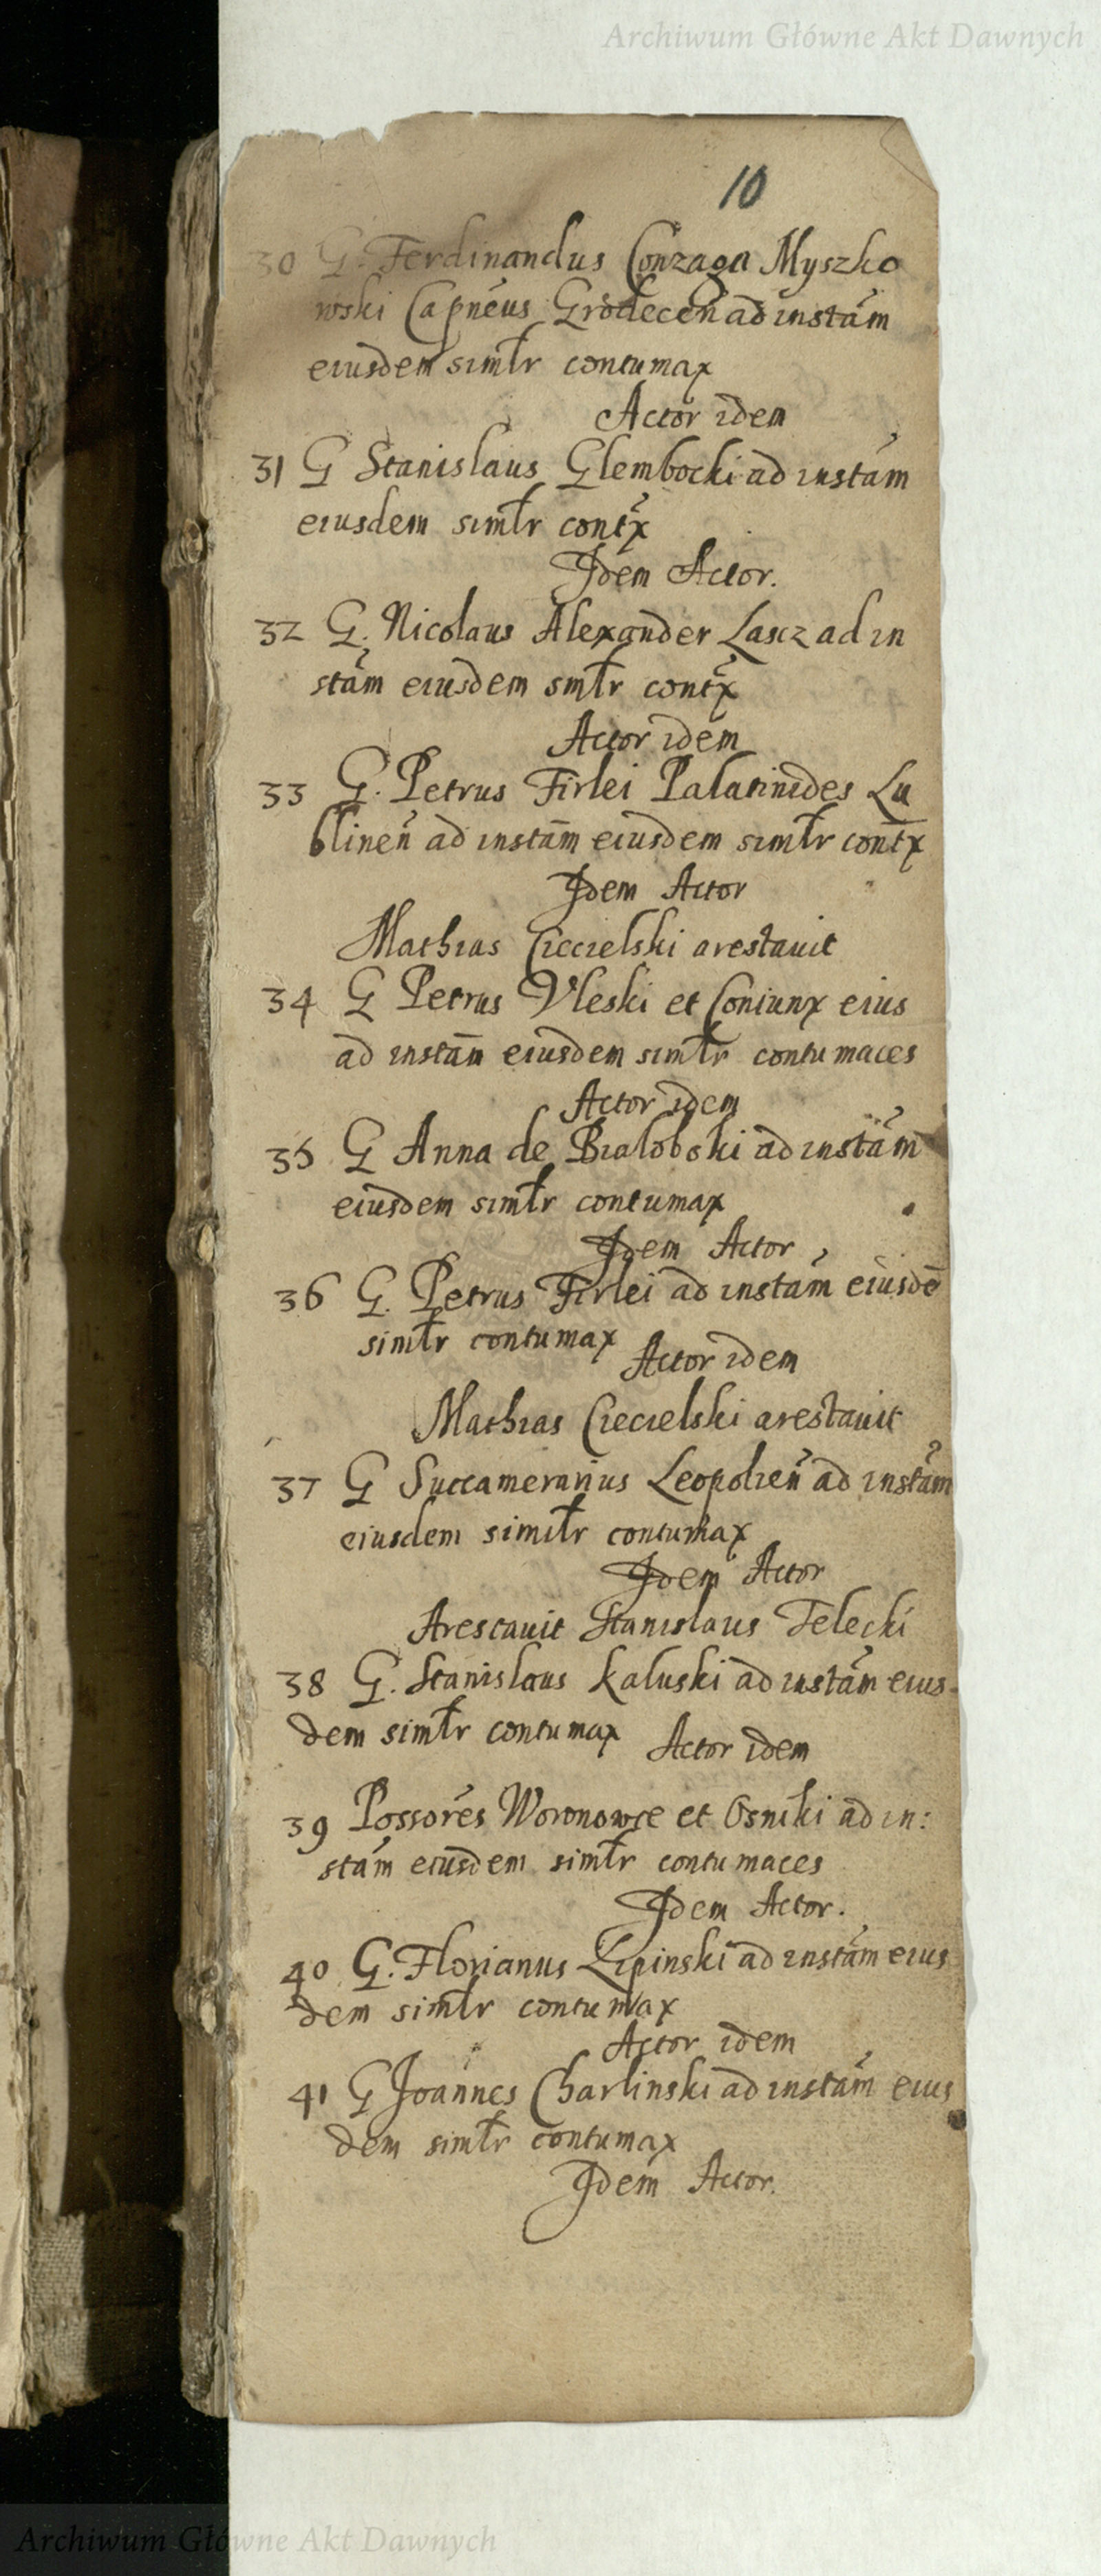 Archiwum Główne Akt Dawnych
10
30 G. Ferdinandus Conzaga Myszko
wski Capneus Grodecen ad instam
eiusdem simlr contumax
Actor idem
31 G Stanislaus Glembocki ad instam
eiusdem simlr contx
Idem Actor.
32 G. Nicolaus Alexander Lascz ad in
stam eiusdem smlr contx
Actor idem
33 G. Petrus Firlei Palatinides Lu
blinen ad instam eiusdem simlr contx
Idem Actor
Mathias Ciecielski arestauit
34 G Petrus Vleski et Coniunx eius
ad instam eiusdem simlr contumaces
Actor idem
35 G Anna de Bialoboki ad instam
eiusdem simlr contumax
Idem Actor
36 G. Petrus Firlei ad instam eiusdē
simlr contumax
Actor idem
Mathias Ciecielski arestauit
37 G Succamerarius Leopolien ad instam
eiusdem similr contumax
Idem Actor
Arestauit Stanislaus Telecki
38 G. Stanislaus Kaluski ad instam eius-
dem simlr contumax Actor idem
39 Possores Woronowce et Osniki ad in:
stam eiusdem simlr contumaces
Idem Actor.
40 G. Florianus Lipinski ad instam eius
dem simlr contumax
Actor idem
41 G Joannes Charlinski ad instam eius
dem simlr contumax
Idem Actor.
Archiwum Główne Akt Dawnych